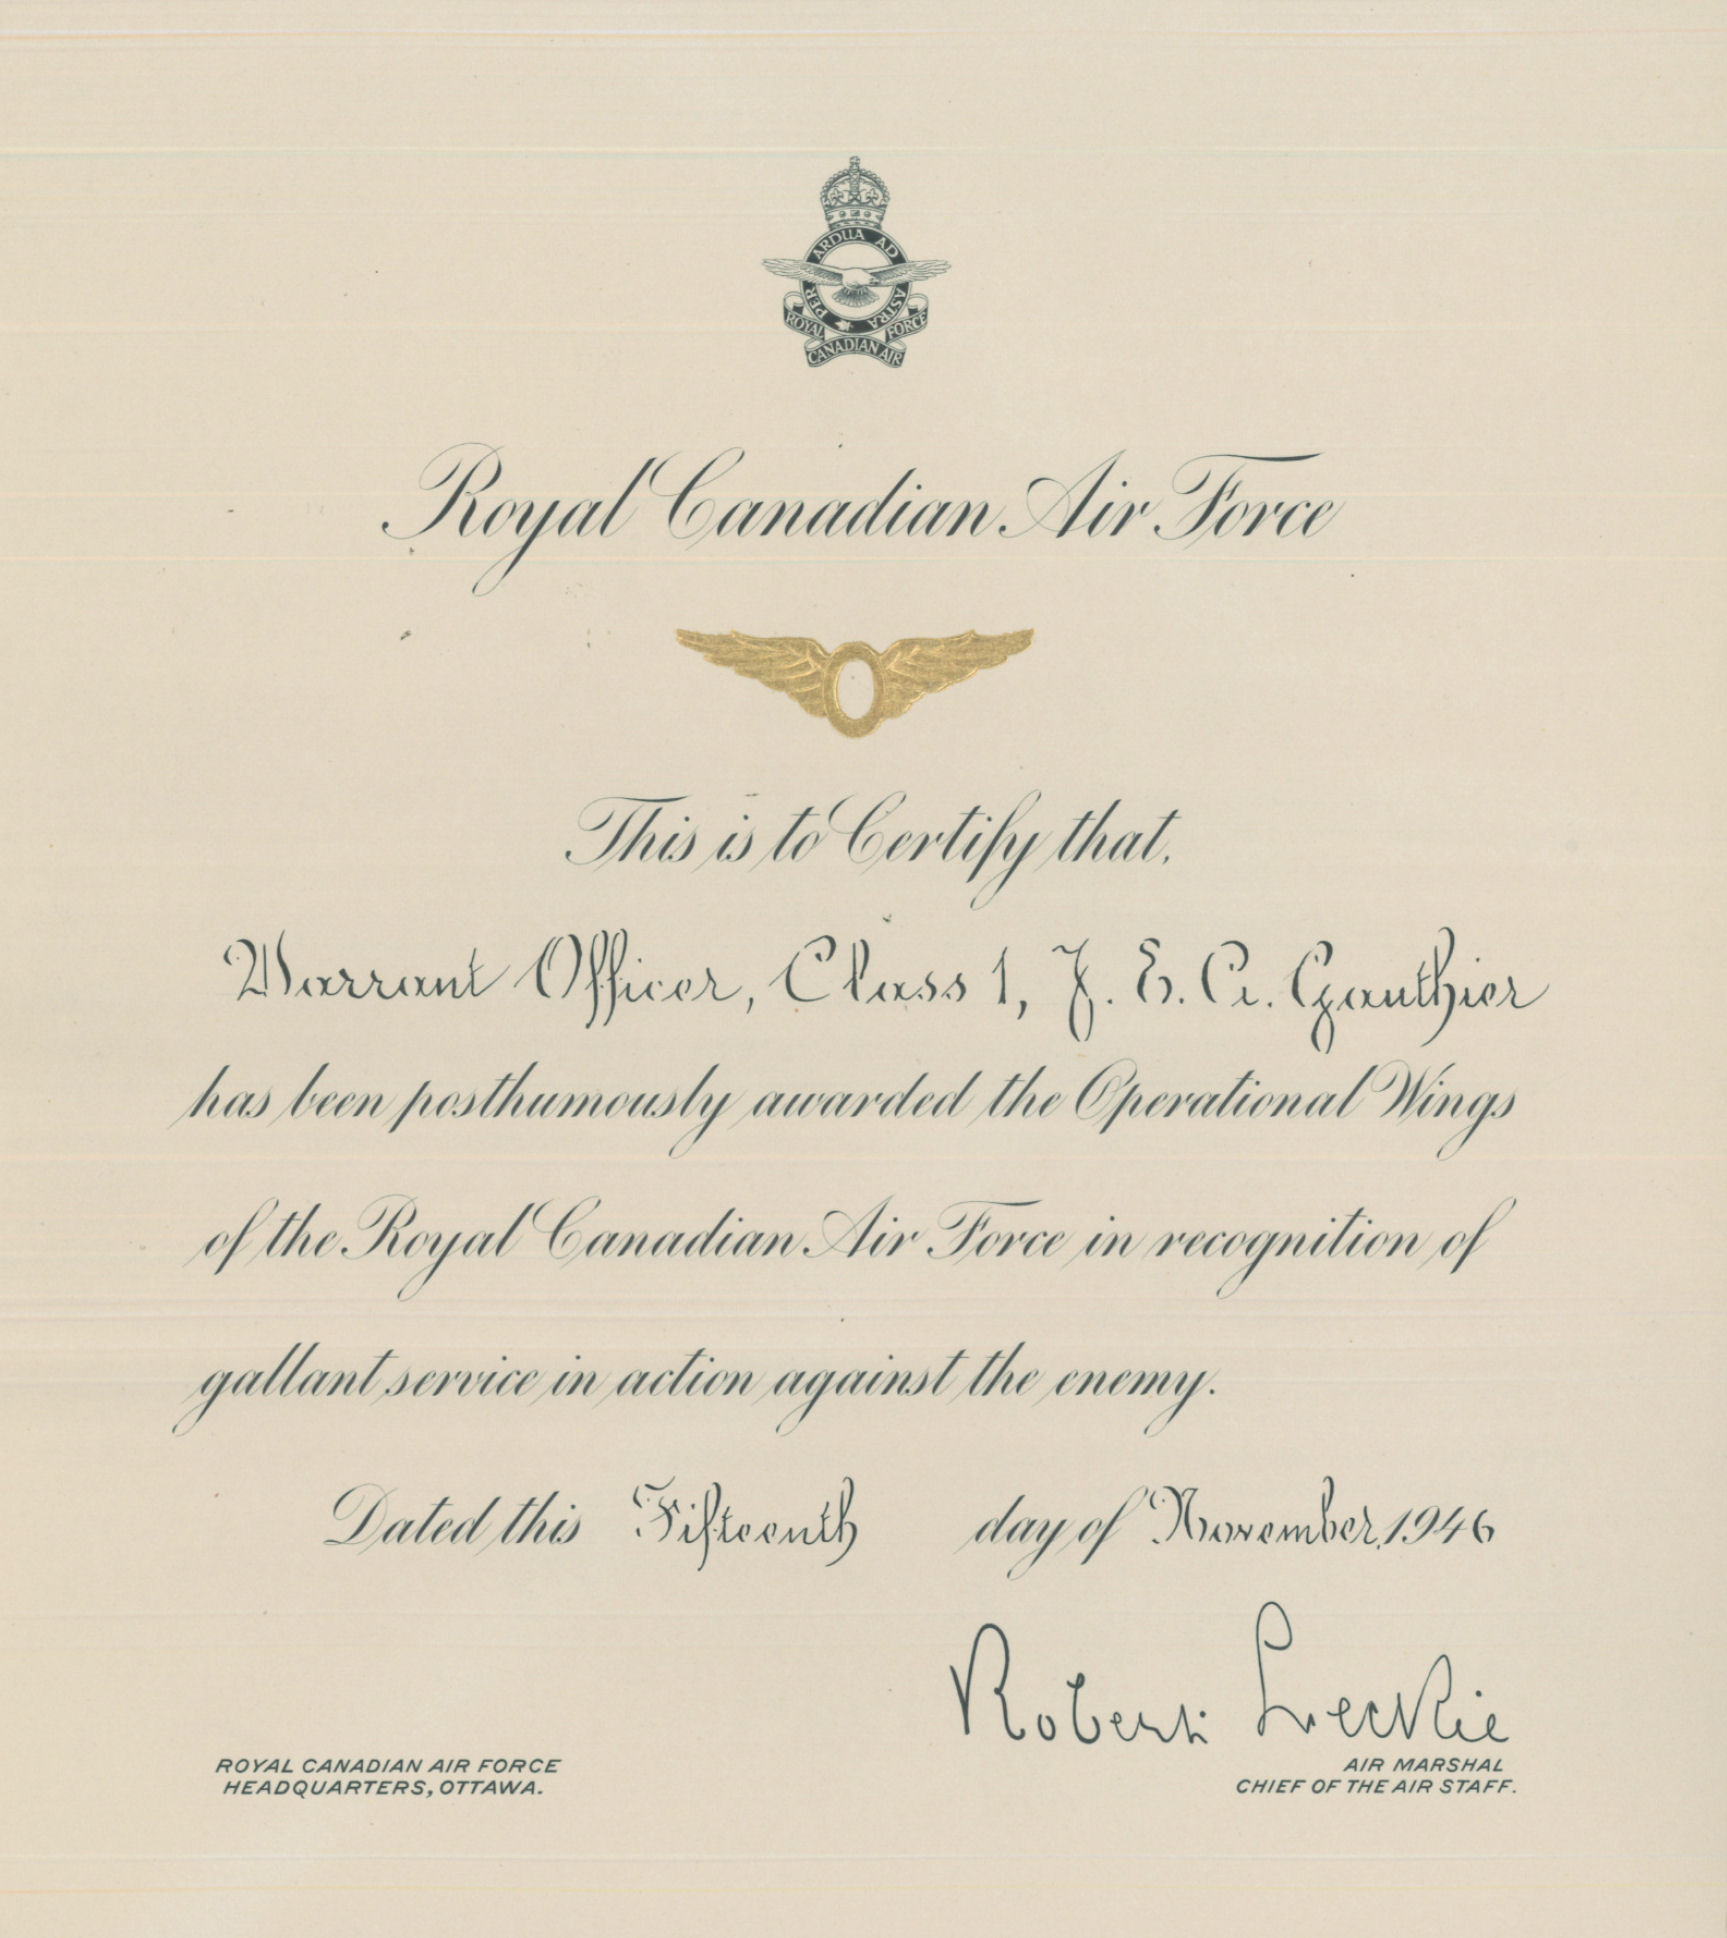 PER ARDUA AD ASTRA
ROYAL CANADIAN AIR FORCE
Royal Canadian Air Force
This is to Certify that,
Warrant Officer, Class 1, J. E. A. Gauthier
has been posthumously awarded the Operational Wings
of the Royal Canadian Air Force in recognition of
gallant service in action against the enemy.
Dated this Fifteenth day of November, 1946
Robert Leckie
ROYAL CANADIAN AIR FORCE
HEADQUARTERS, OTTAWA.
AIR MARSHAL
CHIEF OF THE AIR STAFF.